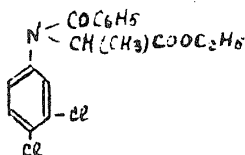 COC6H5
N
CH(CH3)COOC2H5
Cl
Cl